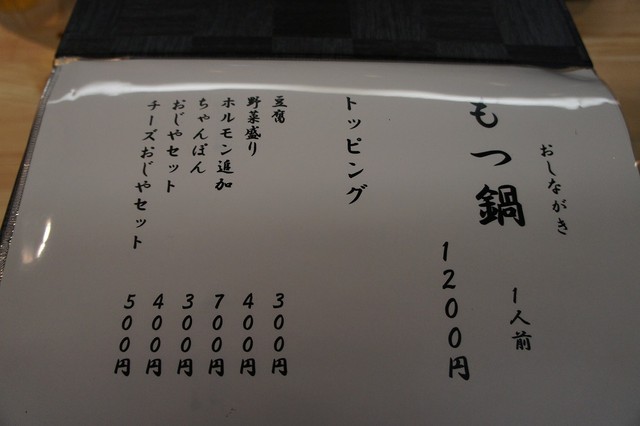 おしながき
もつ鍋 1人前
1200円
トッピング
豆腐 300円
野菜盛り 400円
ホルモン追加 700円
ちゃんぽん 300円
おじやセット 400円
チーズおじやセット 500円